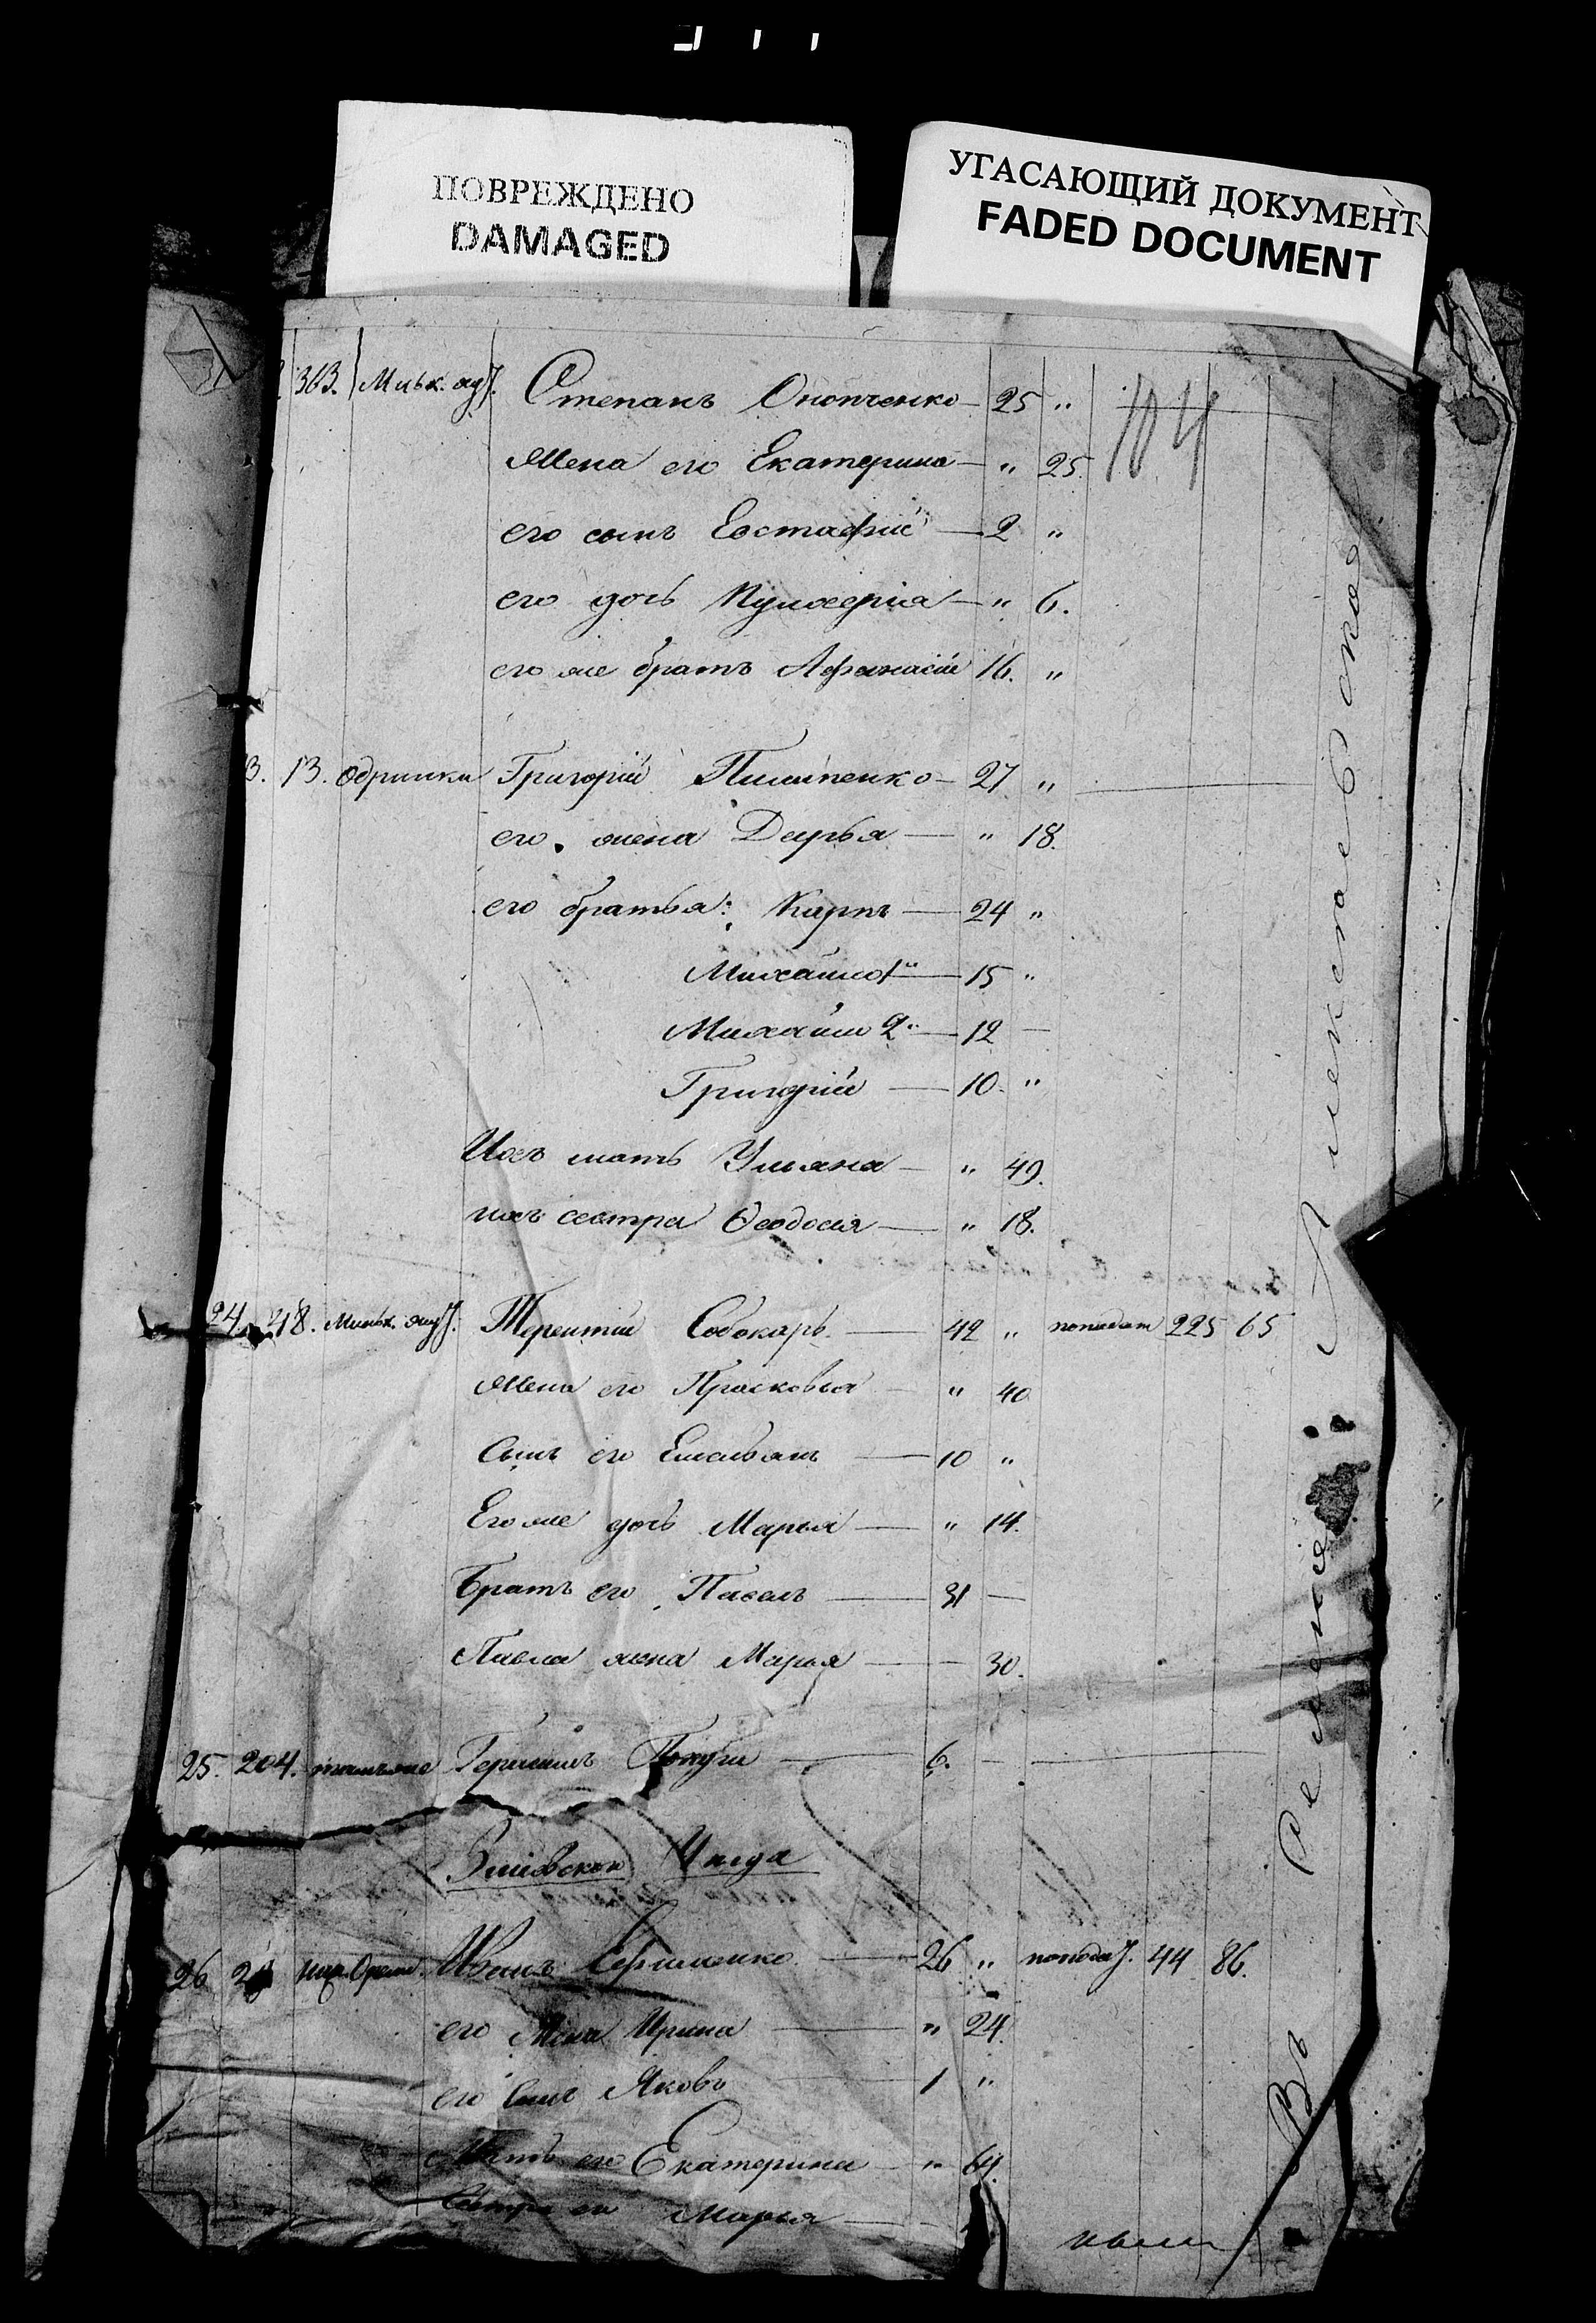 ПОВРЕЖДЕНО
DAMAGED
УГАСАЮЩИЙ ДОКУМЕНТ
FADED DOCUMENT
104
363. Мильк. Степанъ Онопченко — 25 "
Жена его Екатерина — " 25.
его сынъ Евстафій — 2 "
его дочь Пульхерія — " 6.
его же братъ Афанасій 16. "
3. 13. Одринки Григорій Пилипенко — 27 "
его жена Дарья — " 18.
его братья: Карпъ — 24 "
Михайло 1й — 15 "
Михайло 2й — 12 —
Григорій — 10. "
Ихъ мать Ульяна — " 49.
ихъ сестра Ѳеодосія — " 18.
24. 48. Терентій Собокарь — 42 " 225 65
Жена его Прасковья — " 40
Сынъ его Емельянъ — 10 "
Его же дочь Марья — " 14.
Братъ его Павелъ — 31 —
Павла жена Марья — — 30.
25. 204. тамъ же Герасимъ — 6. —
Уезда
26 Иванъ Ефименко — 26 " 44 86.
его Жена Ирина — " 24.
его Сынъ Яковъ 1 "
Мать его Екатерина — " 64.
Сестра его Марья —
Въ